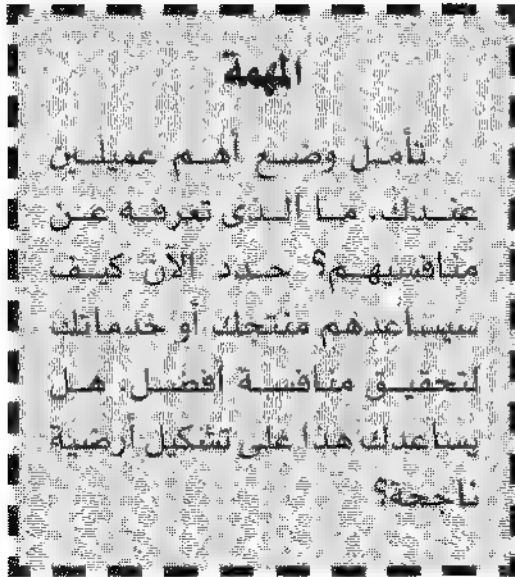 المهمة
تأمل وضع أهم عميلين
عندك، ما الذى تعرفه عن
منافسيهم؟ حدد الآن كيف
سيساعدهم منتجك أو خدماتك
لتحقيق منافسة أفضل. هل
يساعدك هذا على تشكيل أرضية
ناجحة؟